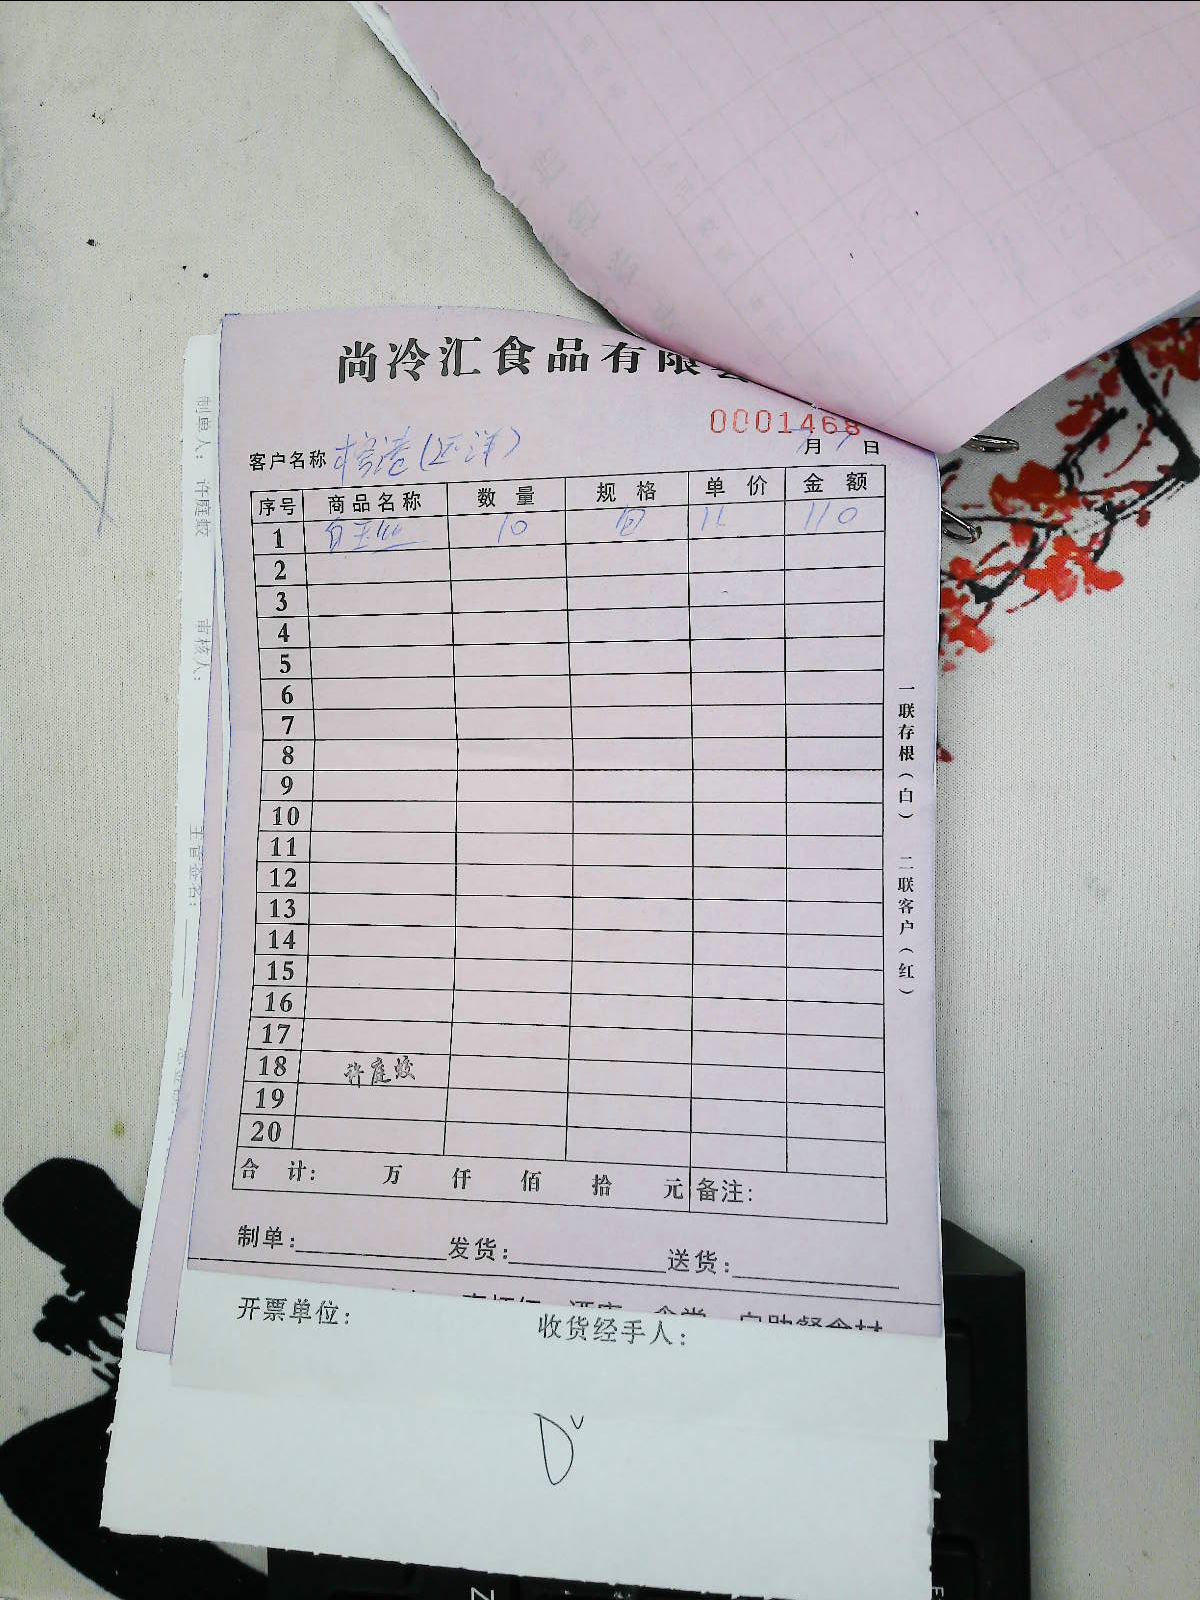 尚冷汇食品有限
0001468
客户名称 月 日
序号 商品名称 数量 规格 单价 金额
1 10 11 110
2
3
4
5
6
7
8
9
10
11
12
13
14
15
16
17
18 许庭蛟
19
20
合计: 万 仟 佰 拾 元 备注:
制单: 发货: 送货:
一联存根(白) 二联客户(红)
开票单位: 收货经手人:
制单人: 许庭蛟 审核人: 主管签名: